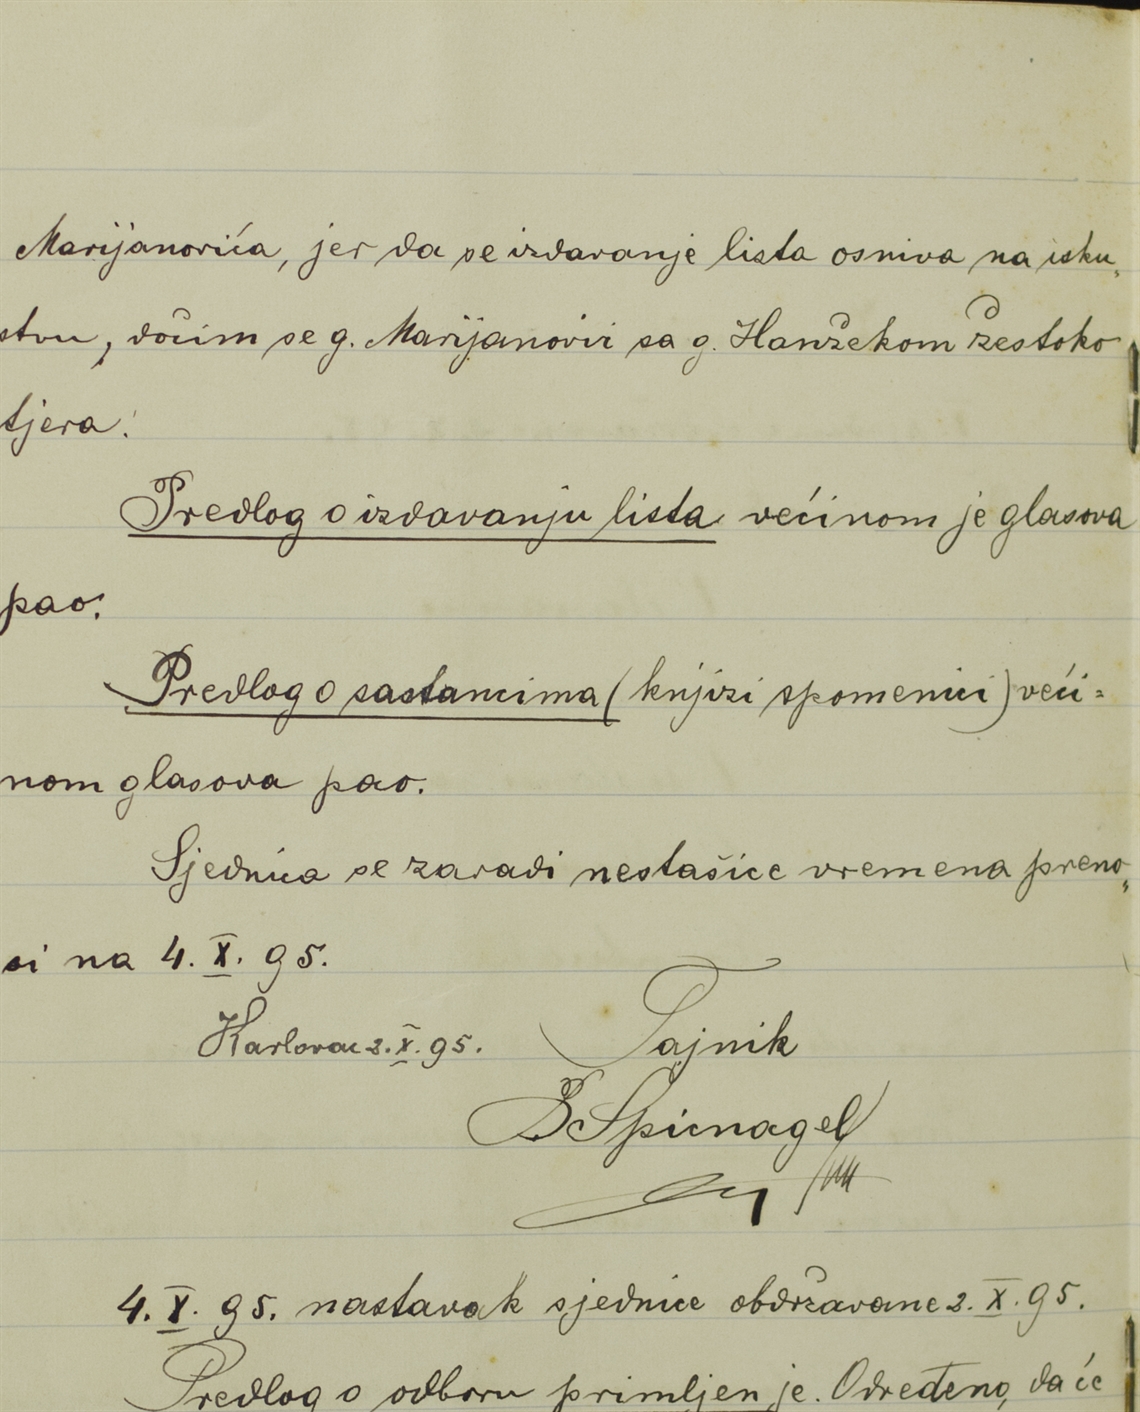 Marijanovića, jer da se izdavanje lista osniva na isku„
stvu, dočim se g. Marijanovič sa g. Hanžekom žestoko
tjera.
Predlog o izdavanju lista većinom je glasova
pao.
Predlog o sastancima (knjizi spomenici) veći=
nom glasova pao.
Sjednica se zaradi nestašice vremena preno„
si na 4. X. 95.
Karlovac 2. X. 95. Tajnik
B Spicnagel
4. X. 95. nastavak sjednice obdržavane 2. X. 95.
Predlog o odboru primljen je. Određeno, da će